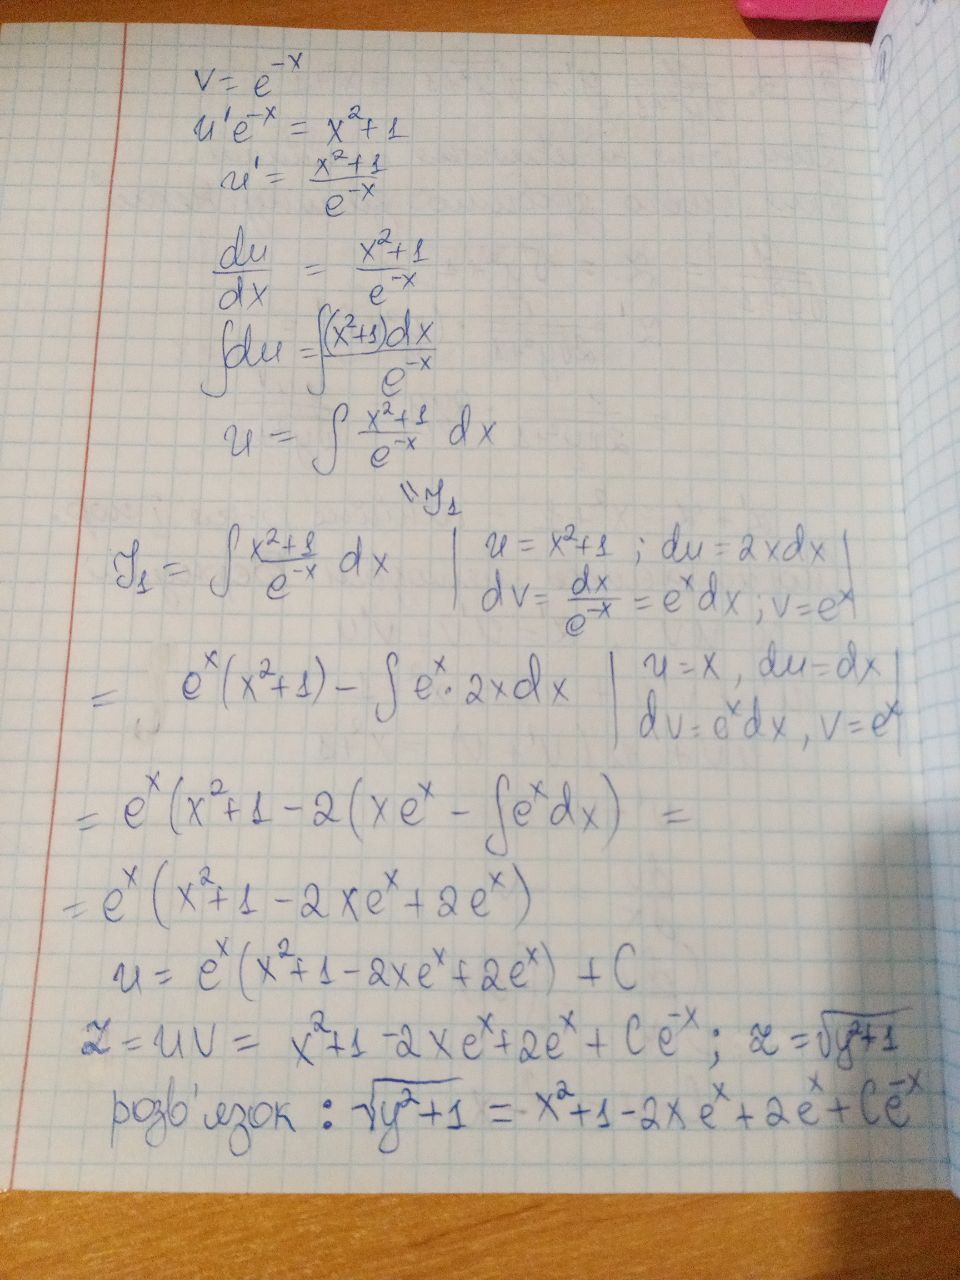 v = e^{-x}
u'e^{-x} = x²+1
u' = \frac{x²+1}{e^{-x}}
\frac{du}{dx} = \frac{x²+1}{e^{-x}}
∫du = ∫\frac{(x²+1)dx}{e^{-x}}
u = ∫ \frac{x²+1}{e^{-x}} dx
"J₁
J₁ = ∫ \frac{x²+1}{e^{-x}} dx | u = x²+1 ; du = 2xdx |
dv = \frac{dx}{e^{-x}} = e^x dx ; v = e^x
= e^x(x²+1) - ∫ e^x · 2xdx | u = x , du = dx |
dv = e^x dx , v = e^x
= e^x (x²+1 - 2 (xe^x - ∫e^x dx) =
= e^x (x²+1 - 2xe^x + 2e^x)
u = e^x (x²+1 - 2xe^x + 2e^x) + C
z = uv = x²+1 - 2xe^x + 2e^x + Ce^{-x} ; z = √(y²+1)
розв'язок : √(y²+1) = x²+1 - 2xe^x + 2e^x + Ce^{-x}